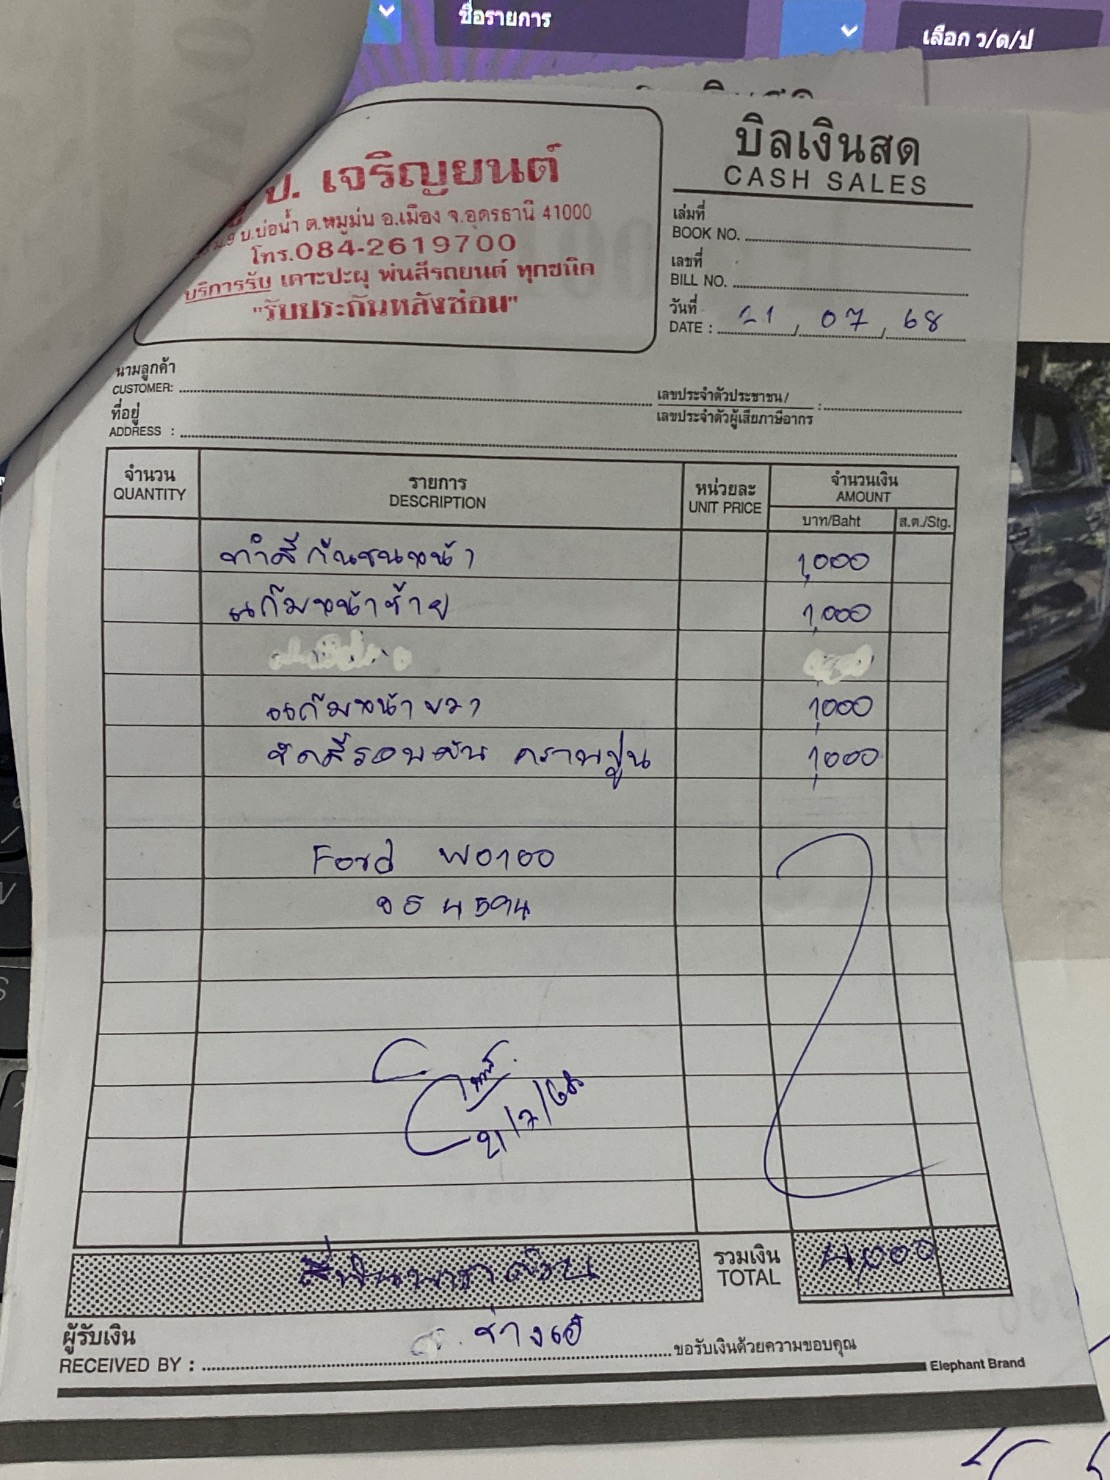 ชื่อรายการ
เลือก ว/ด/ป
ป. เจริญยนต์
บ.บ่อน้ำ ต.หมูม่น อ.เมือง จ.อุดรธานี 41000
โทร.084-2619700
บริการรับ เคาะปะผุ พ่นสีรถยนต์ ทุกชนิด
"รับประกันหลังซ่อม"
บิลเงินสด
CASH SALES
เล่มที่
BOOK NO.
เลขที่
BILL NO.
วันที่
DATE : 21, 07, 68
นามลูกค้า
CUSTOMER:
เลขประจำตัวประชาชน/
เลขประจำตัวผู้เสียภาษีอากร :
ที่อยู่
ADDRESS :
จำนวน รายการ หน่วยละ จำนวนเงิน
QUANTITY DESCRIPTION UNIT PRICE AMOUNT
บาท/Baht ส.ต./Stg.
ทำสีกันชนหน้า 1,000
แก้มหน้าซ้าย 1,000
แก้มหน้าขวา 1,000
ขัดสีรอบคัน คราบปูน 1,000
Ford
21/7/68
สี่พันบาทถ้วน รวมเงิน 4,000
TOTAL
ผู้รับเงิน
RECEIVED BY : ขอรับเงินด้วยความขอบคุณ
Elephant Brand